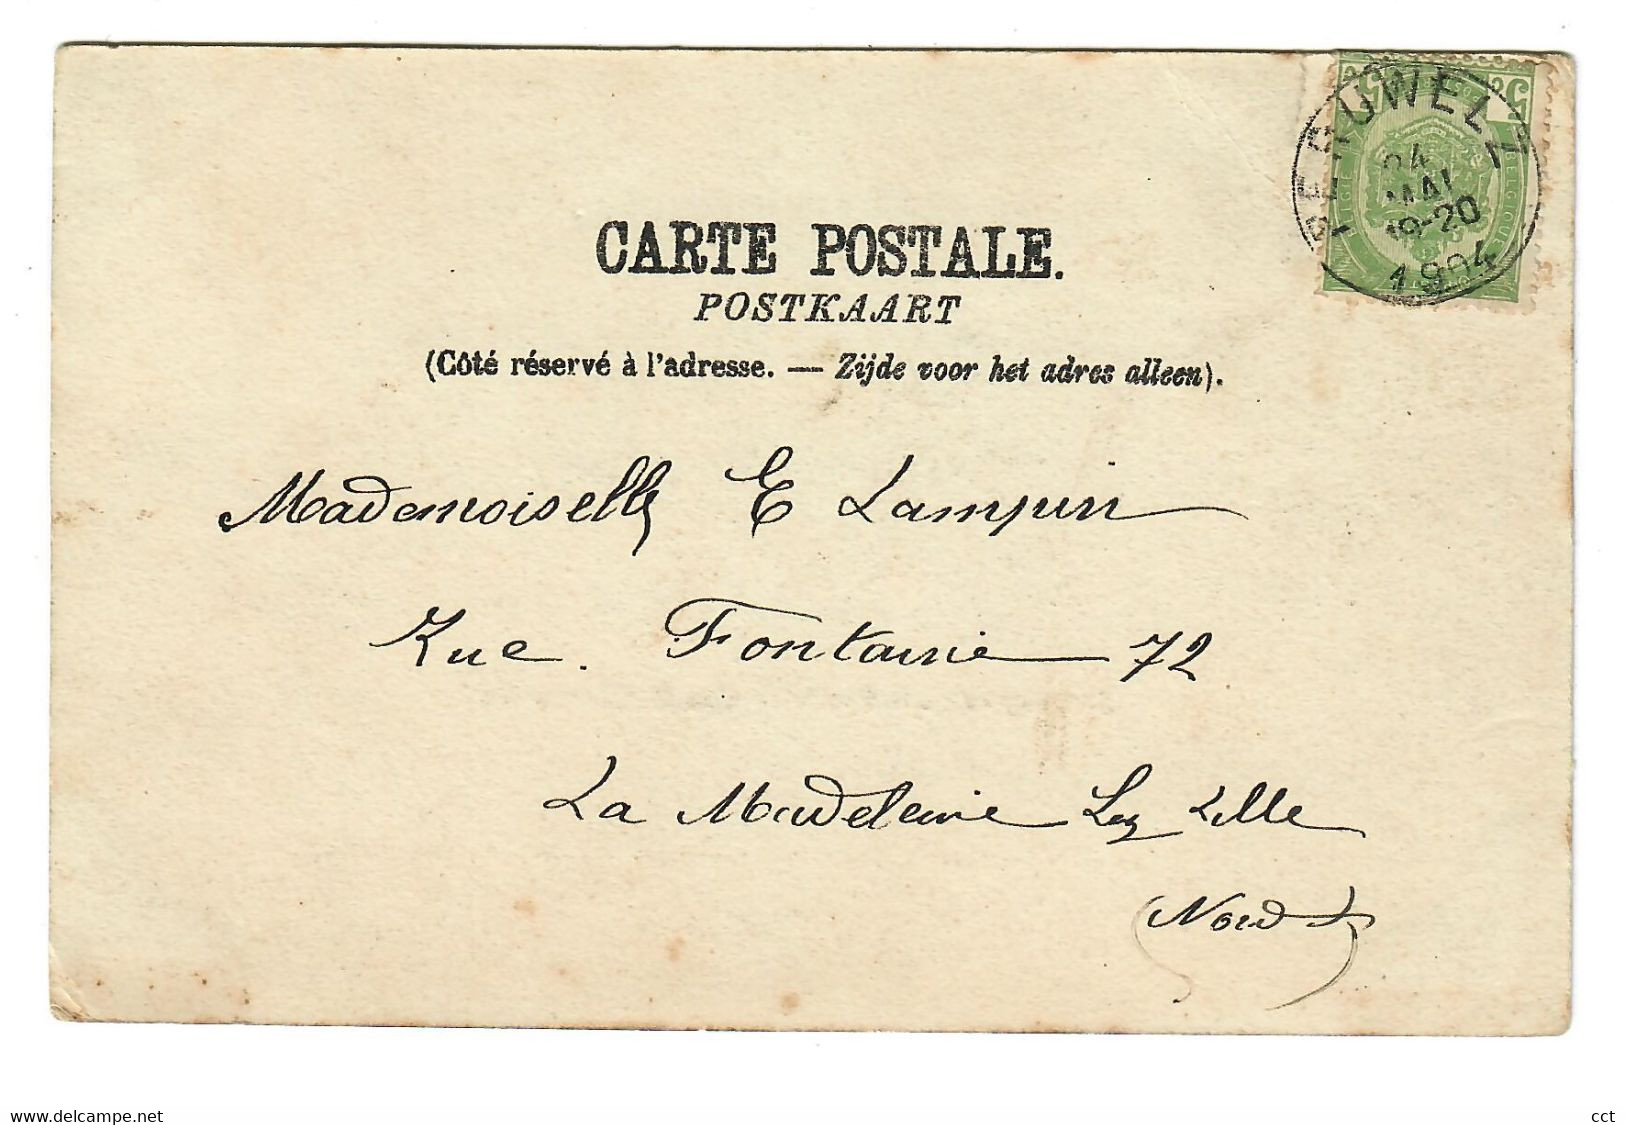 PERUWELZ
24
MAI
19-20
1904
5 5
BELGIQUE
CARTE POSTALE.
POSTKAART
(Côté réservé à l'adresse. — Zijde voor het adres alleen).
Mademoiselle E Lampin
Rue Fontaine 72
La Madeleine Lez Lille
(Nord)
www.delcampe.net
cct